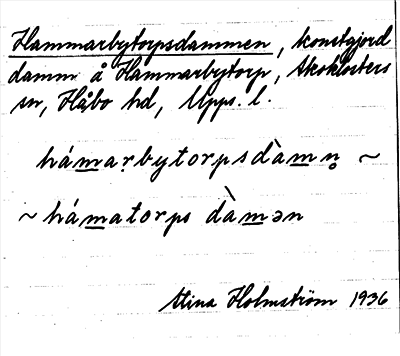 Hammarbytorpsdammen, konstgjord
damm å Hammarbytorp, Skoklosters
sn, Håbo hd, Upps. l.
hám̲arbytorpsdàm̲n̥ ~
~ hám̲atorps dàm̲ən
Stina Holmström 1936